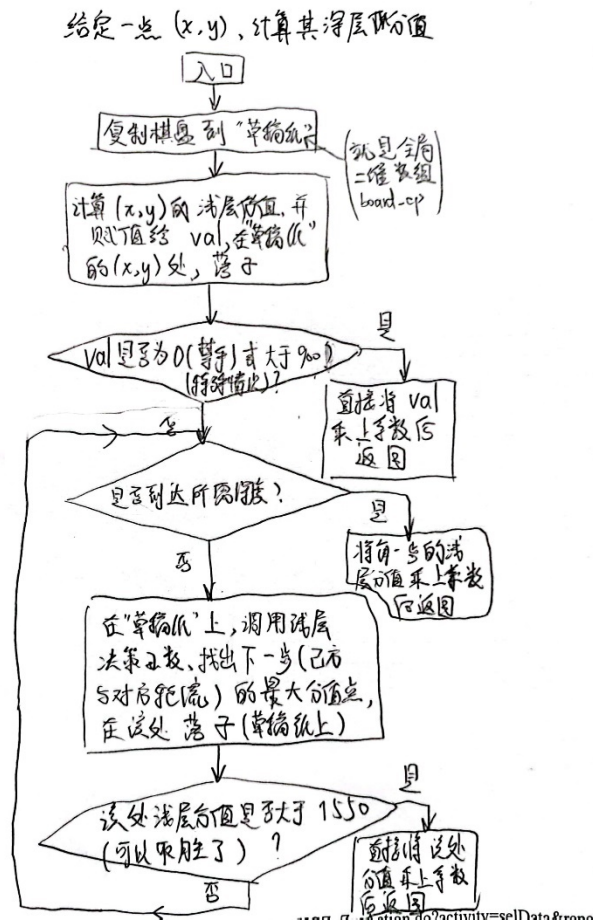 给定一点 (x,y)、计算其深层价值
入口
复制棋盘到“草稿纸”
就是全局
二维数组
board_cp
计算(x,y)的浅层价值,并
赋值给 val,在“草稿纸”
的(x,y)处,落子
val是否为0(禁手)或大于900
(特殊情况)?
是
直接将 val
乘上系数后
返回
否
是否到达所需深度?
是
将每一步的浅
层分值乘上系数
后返回
否
在“草稿纸”上,调用浅层
决策函数、找出下一步(己方
与对方轮流)的最大分值点,
在该处落子(草稿纸上)
该处浅层分值是否大于1550
(可以取胜了)?
是
直接将该处
分值乘上系数
后返回
否
ation.do?activity=selData&tropo